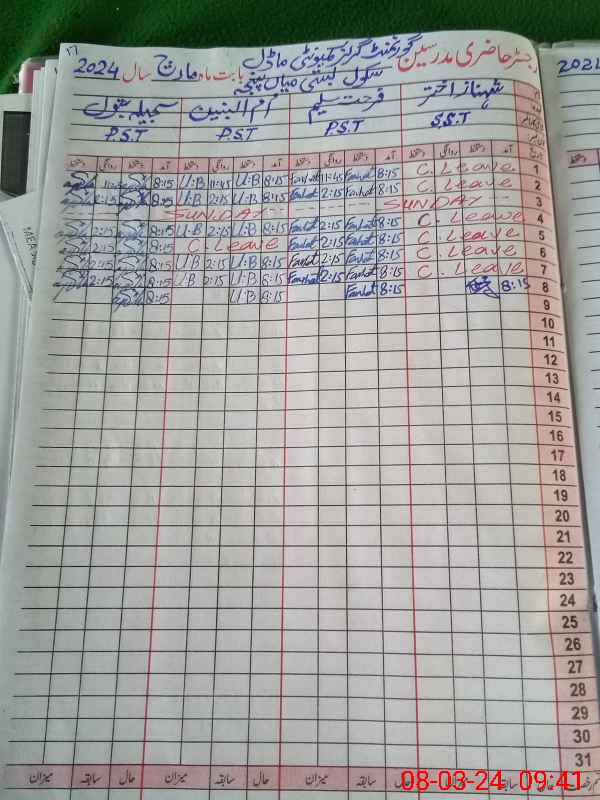 رجسٹر حاضری مدرسین گورنمنٹ گرلز کمیونٹی ماڈل بابت ماہ مارچ سال 2024
سکول بستی میاں
شہناز اختر فرحت سلیم ام البنین سجیلہ بتول
S.S.T P.S.T P.S.T P.S.T
آمد دستخط روانگی دستخط آمد دستخط روانگی دستخط آمد دستخط روانگی دستخط آمد دستخط روانگی دستخط
1 C. Leave 8:15 Farhat 11:45 Farhat 8:15 U.B 11:45 U.B 8:15
2 C. Leave 8:15 Farhat 2:15 Farhat 8:15 U.B 2:15 U.B 8:15 2:15
3 SUNDAY SUNDAY
4 C. Leave 8:15 Farhat 2:15 Farhat 8:15 U.B 2:15 U.B 8:15 2:15
5 C. Leave 8:15 Farhat 2:15 Farhat C. Leave 8:15 2:15
6 C. Leave 8:15 Farhat 2:15 Farhat 8:15 U.B 2:15 U.B 8:15 2:15
7 C. Leave 8:15 Farhat 2:15 Farhat 8:15 U.B 2:15 U.B 8:15 2:15
8 8:15 8:15 Farhat 8:15 U.B 8:15
9
10
11
12
13
14
15
16
17
18
19
20
21
22
23
24
25
26
27
28
29
30
31
حال سابقہ میزان حال سابقہ میزان حال سابقہ میزان
2024
08-03-24 09:41